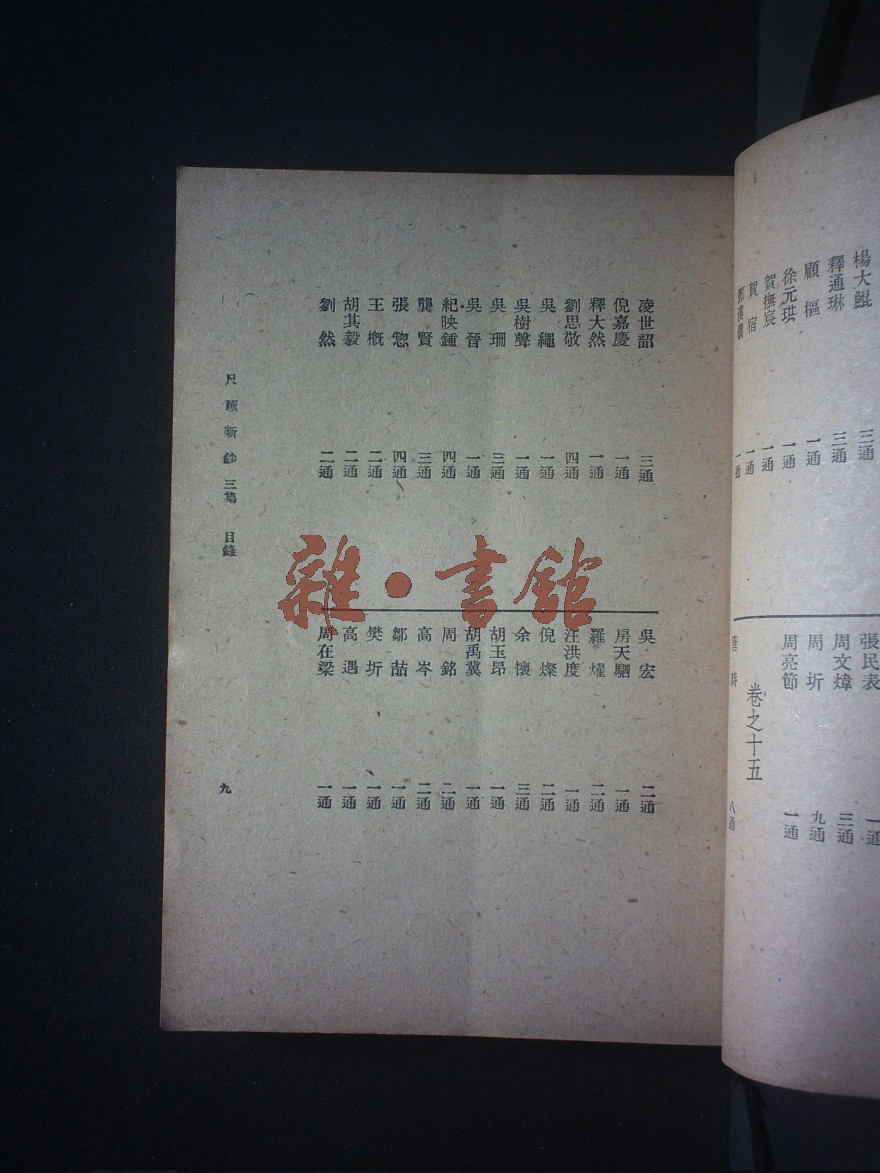 楊大鯤 三通
釋通琳 三通
顧樞 一通
徐元珙 一通
賀撫宸 一通
賀宿 一通
一通
張民表 一通
周文煒 三通
周圻 九通
周亮節 一通
卷之十五
唐時 八通
凌世韶 三通
倪嘉慶 一通
釋大然 一通
劉思敬 四通
吳繩 一通
吳樹聲 一通
吳珊 三通
吳晉 一通
紀映鍾 四通
龔賢 三通
張惣 四通
王概 二通
胡其毅 二通
劉然 二通
吳宏 二通
房天駟 一通
羅燿 二通
汪洪度 一通
倪燦 二通
余懷 三通
胡玉昂 一通
胡禹冀 一通
周銘 二通
高岑 二通
鄒喆 一通
樊圻 一通
高遇 一通
周在梁 一通
尺牘新鈔三集 目錄
九
雜·書館